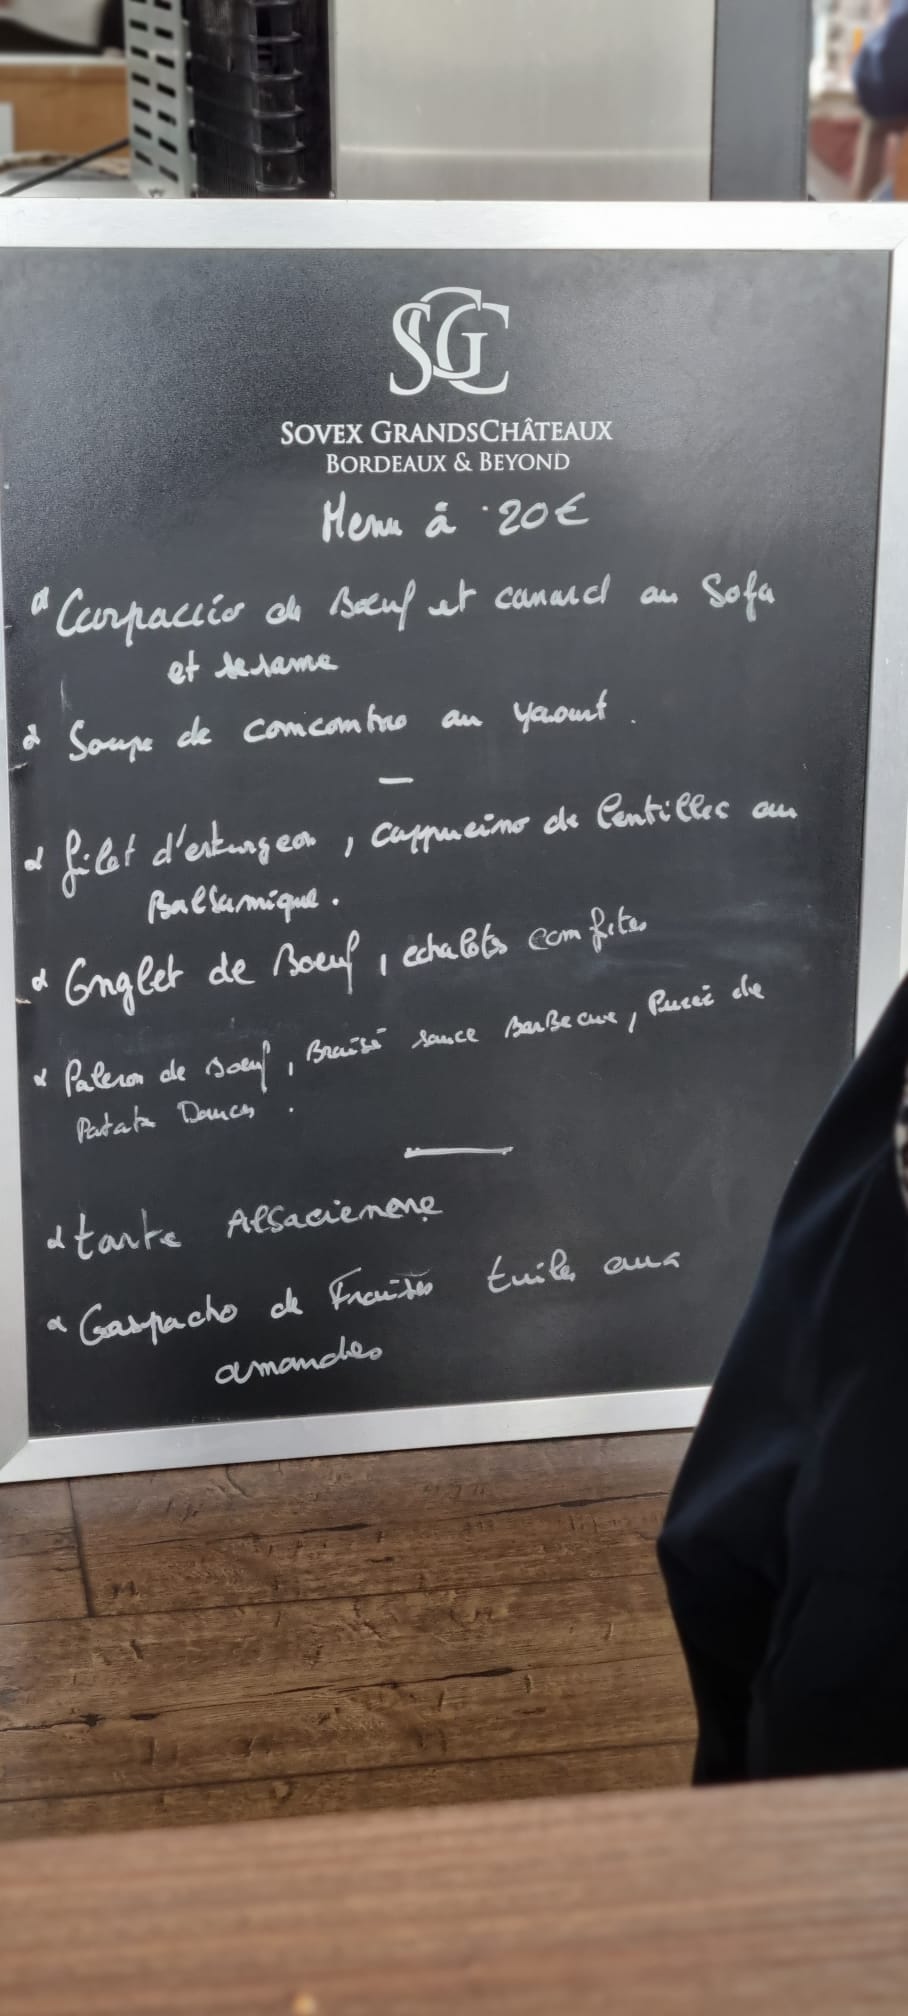 SGC
SOVEX GRANDSCHÂTEAUX
BORDEAUX & BEYOND
Menu à 20€
Carpaccio de Bœuf et canard au Sofa
et sesame
Soupe de concombre au yaourt.
filet d'esturgeon, cappucino de lentilles au
Balsamique.
Onglet de Boeuf, echalots confites
Paleron de Boeuf, Braisé sauce BarBecue, Pureé de
Patate Douces.
tarte Alsacienene
Gaspacho de Fraises tuiles aux
amandes